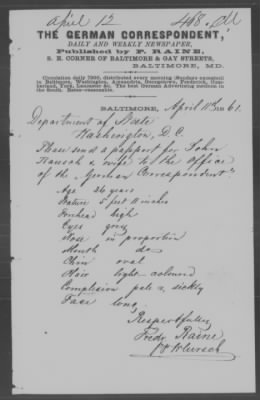 April 12
468. M
THE GERMAN CORRESPONDENT,
DAILY AND WEEKLY NEWSPAPER,
Published by F. RAINE,
S. E. CORNER OF BALTIMORE & GAY STREETS,
BALTIMORE, MD.
Circulation daily 7000, distributed every morning (Sundays excepted)
in Baltimore, Washington, Alexandria, Georgetown, Frederick, Cumberland,
York, Lancaster &c. The best German Advertising medium in
the South. Rates—reasonable.
BALTIMORE, April 11th 1861.
Department of State
Washington, D.C.
Please send a passport for John
Rausch & wife to the office
of the "German Correspondent"
Age 26 years
Stature 5 feet 11 inches
Forehead high
Eyes grey
Nose in proportion
Mouth do
Chin oval
Hair light-coloured
Complexion pale & sickly
Face long
Respectfully
Fredr. Raine